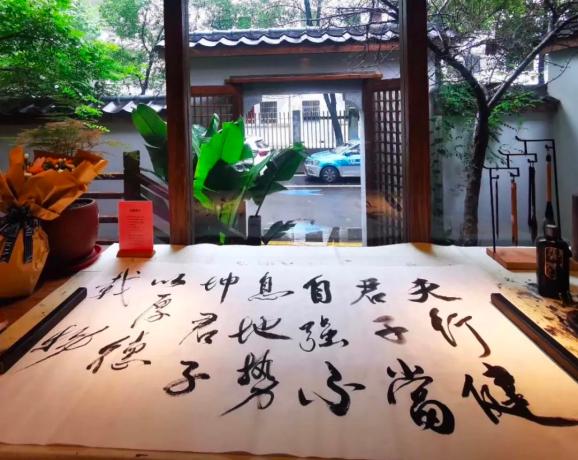 天行健
君子當
自強不
息地勢
坤君子
以厚德
載物